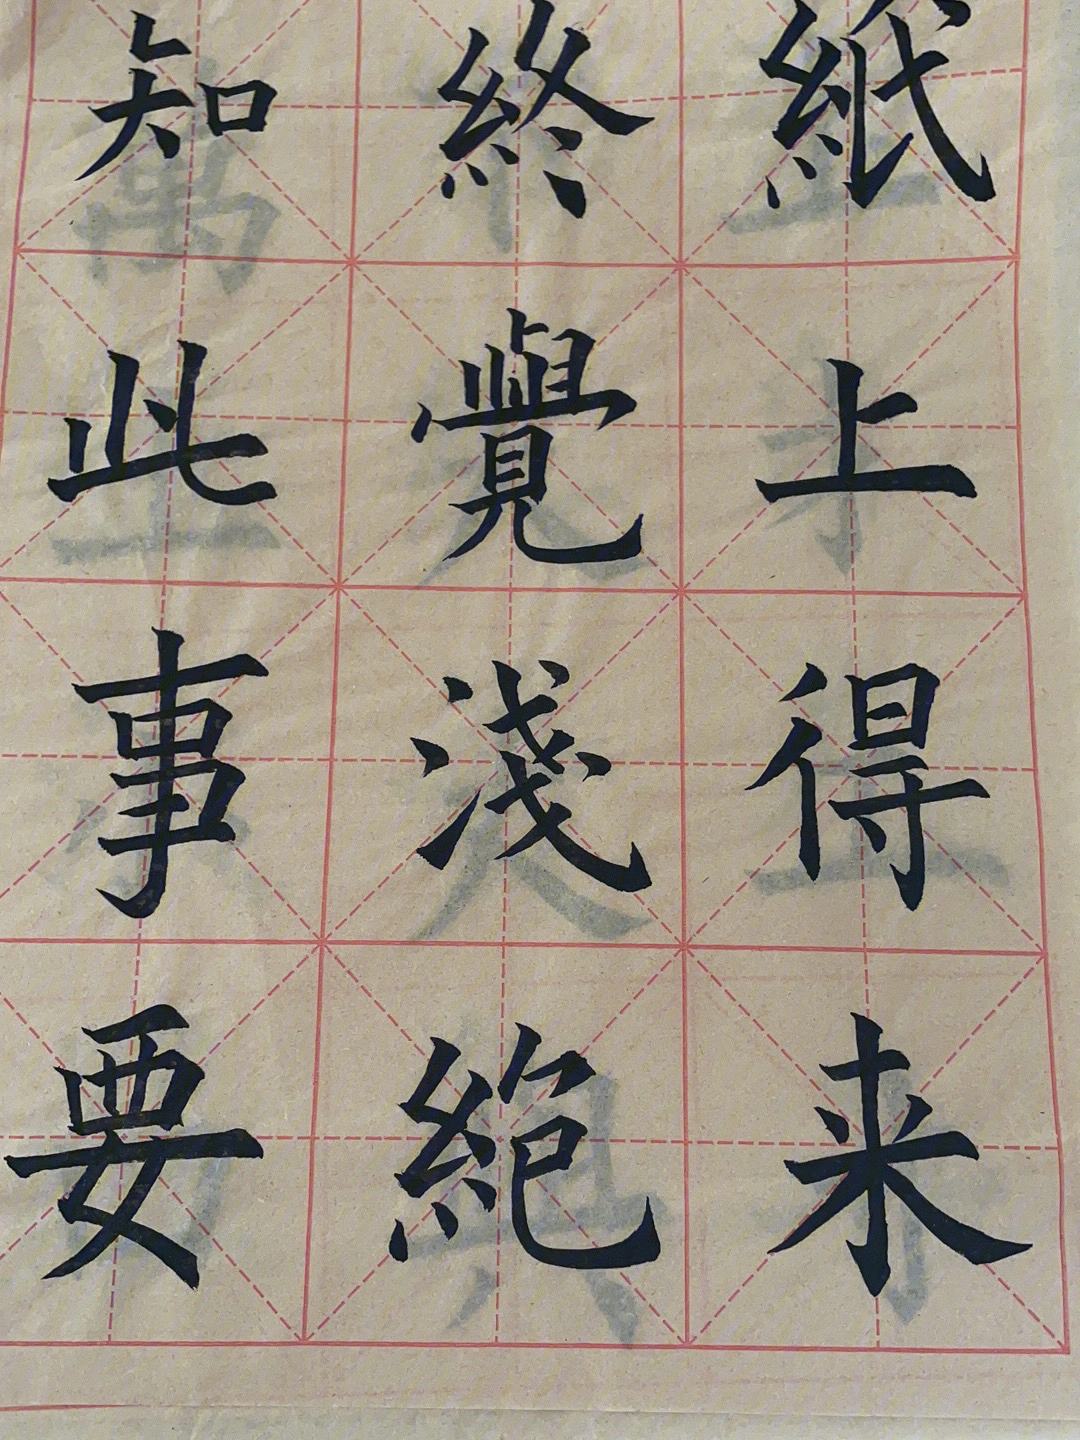 紙上得来
終覺淺絶
知此事要